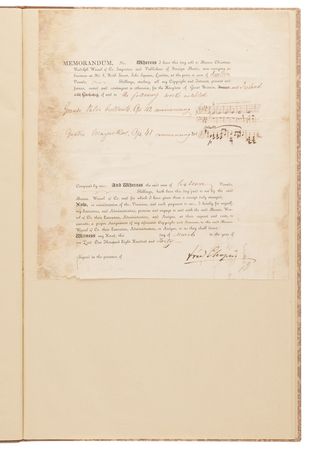 MEMORANDUM, No. Whereas I have this day sold to Messrs. Christian
Rudolph Wessel & Co. Importers and Publishers of Foreign Music, now carrying on
business at No. 6, Frith Street, Soho Square, London, at the price or sum of
Pounds, Shillings, sterling, all my Copyright and Interest, present and
future, vested and contingent or otherwise, for the Kingdom of Great Britain, and Ireland
of and in the following work entitled
Grande Valse Op: 42 commencing
Quatre Mazourkas, Op: 41 commencing
Composed by me: And Whereas the said sum of Pounds,
Shillings, hath been this day paid to me by the said
Messrs. Wessel & Co. and for which I have given them a receipt duly stamped,
Now, in consideration of the Premises, and such payment to me, I hereby for myself,
my Executors, and Administrators, promise and engage to and with the said Messrs. Wes-
sel & Co. their Executors, Administrators, or Assigns, at their request and cost, to
execute, a proper Assignment of my aforesaid Copyright and Interest, to the said Messrs.
Wessel & Co. their Executors, Administrators, or Assigns, or as they shall direct
Witness my Hand, this day of March in the year of
our Lord One Thousand Eight Hundred and Forty
Signed in the presence of
Fred Chopin